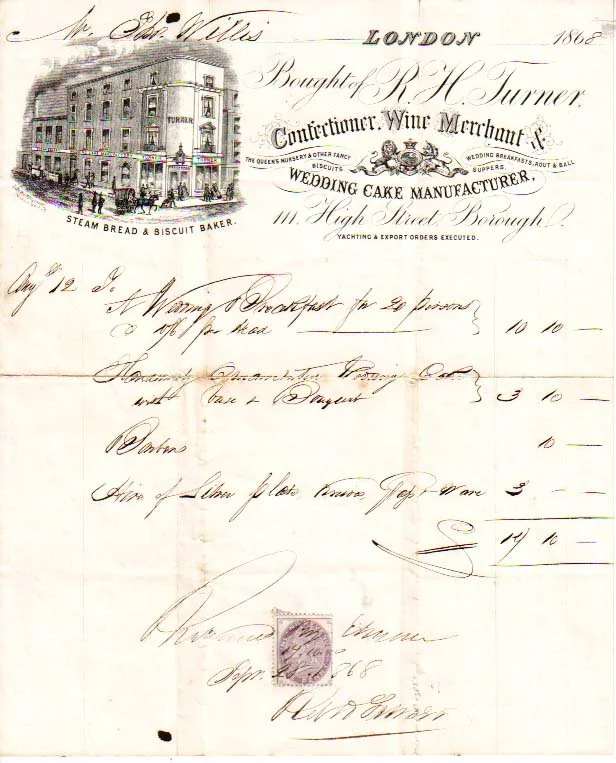 Mr. Edw. Willis
LONDON 1868
Bought of R. H. Turner,
Confectioner, Wine Merchant &
THE QUEEN'S NURSERY & OTHER FANCY BISCUITS
WEDDING BREAKFASTS, ROUT & BALL SUPPERS
WEDDING CAKE MANUFACTURER,
111, High Street, Borough.
YACHTING & EXPORT ORDERS EXECUTED.
TURNER
STEAM BREAD & BISCUIT BAKER.
Augst 12 To
A Wedding Breakfast for 20 persons
10/6 per head 10 10 —
Ornamented Wedding Cake
with base & Bouquet 3 10 —
10 —
Hire of Silver plate, Knives, Glass & Ware 3 - —
£ 17 10 —
17.10
Sepr. 28 1868
R H Turner